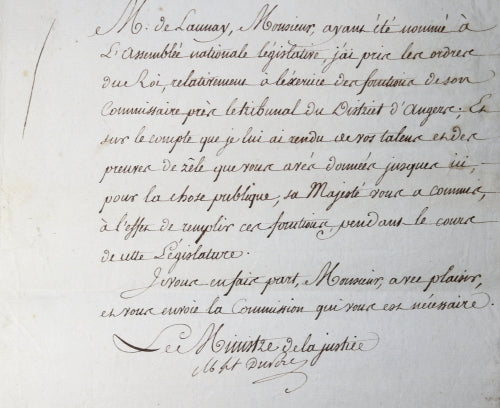 M. de Launay, Monsieur, ayant été nommé à
L'Assemblée nationale législative, j'ai pris les ordres
du Roi, relativement à l'exercice des fonctions de son
Commissaire près le tribunal du District d'Angers; Et
sur le compte que je lui ai rendu de vos talens et des
preuves de zèle que vous avés données jusques ici,
pour la chose publique, sa Majesté vous a commis,
à l'effet de remplir ces fonctions, pendant le cours
de cette Législature.
Je vous en fais part, Monsieur, avec plaisir,
et vous envoie la Commission qui vous est nécessaire.
Le Ministre de la justice